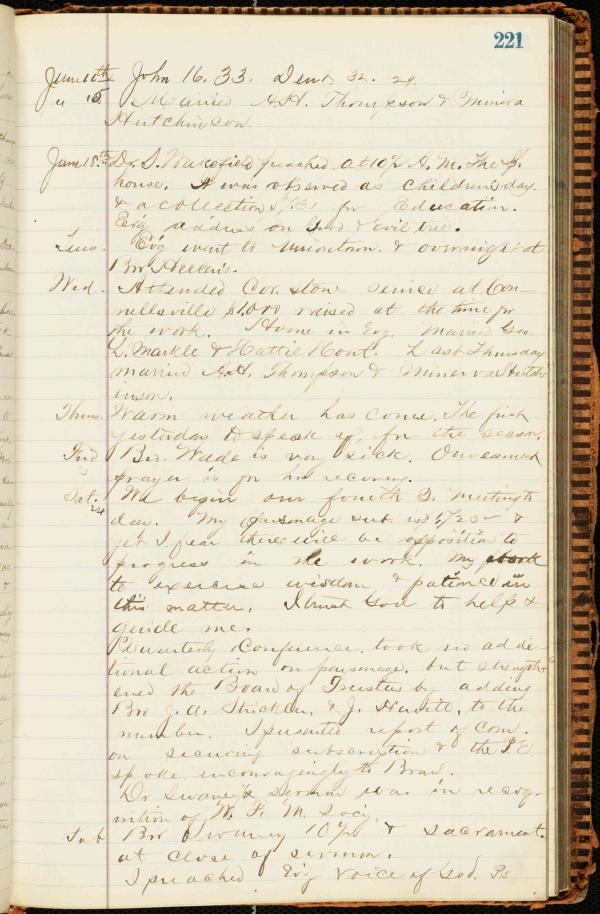 221
June 11th John 16. 33. Deut. 32. 29.
" 15 Married A.H. Thompson & Minerva
Hutchinson.
June 18th Dr. S. Wakefield preached at 10½ A.M. The
house. It was observed as children's day
& a collection for Education.
Ev'g address on Good & Evil tree.
Tues. Ev'g went to Uniontown & overnight at
Bro
Wed. Attended Cor. stone service at Con-
nellsville $1,000 raised at the time for
the work. Home in Evg. Married Geo.
L. Markle & Hattie Hout. Last Thursday
married A.H. Thompson & Minerva Hutch-
inson.
Thurs. Warm weather has come. The first
yesterday to speak of, for the season.
Frid Bro. Wade is very sick. Our earnest
prayer is for his recovery.
Sat. 24 We begin our fourth Q. meeting to
day. My parsonage sub. is &
yet I fear there will be opposition to
progress in the work. My
to exercise wisdom & patience in
this matter. I trust God to help &
guide me.
Quarterly Conference, took no addi-
tional action on parsonage, but strength-
ened the Board of Trustees by adding
Bro J. A. Strickler, & J. Hewitt, to the
number. I presented report of Com.
on securing subscription & the P.E.
spoke encouragingly to Broad.
Dr Swaney's sermon was in recog-
nition of W. F. M. Socy.
Sab Bro Swaney 10½ & sacrament.
at close of sermon.
I preached Ev'g Voice of God. Ps